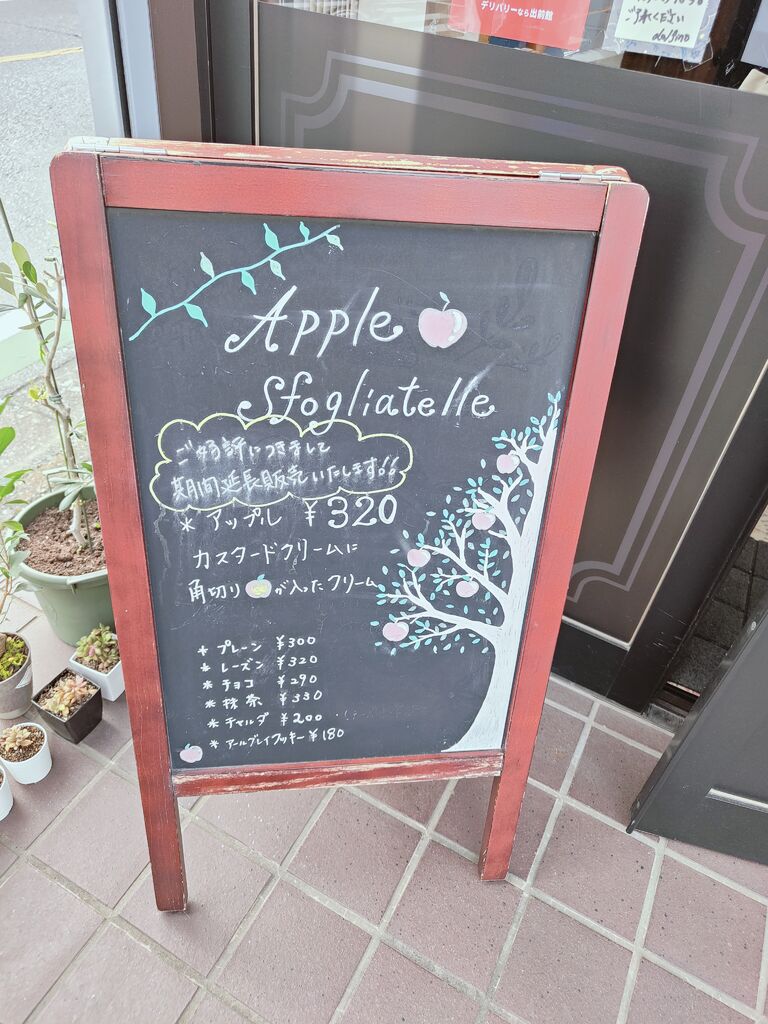 デリバリーなら出前館
ご了承ください
Apple
Sfogliatelle
ご好評につきまして
期間延長販売いたします!!
* アップル ¥320
カスタードクリームに
角切り🍎が入ったクリーム
* プレーン ¥300
* レーズン ¥320
* チョコ ¥290
* 抹茶 ¥330
* チャルダ ¥200
* アールグレイクッキー ¥180